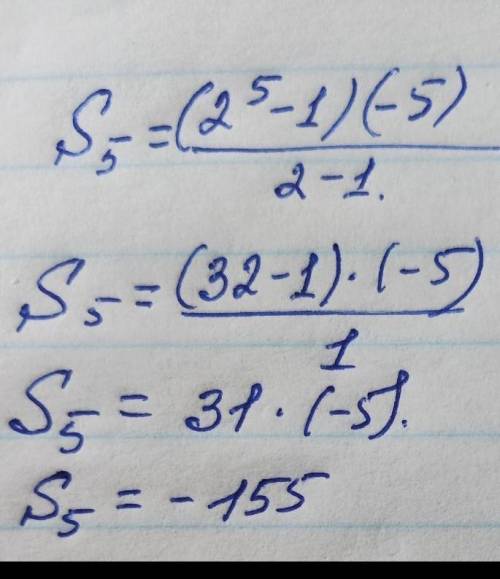 S₅ = (2⁵ - 1)(-5)
2 - 1.
S₅ = (32 - 1) · (-5)
1
S₅ = 31 · (-5).
S₅ = - 155